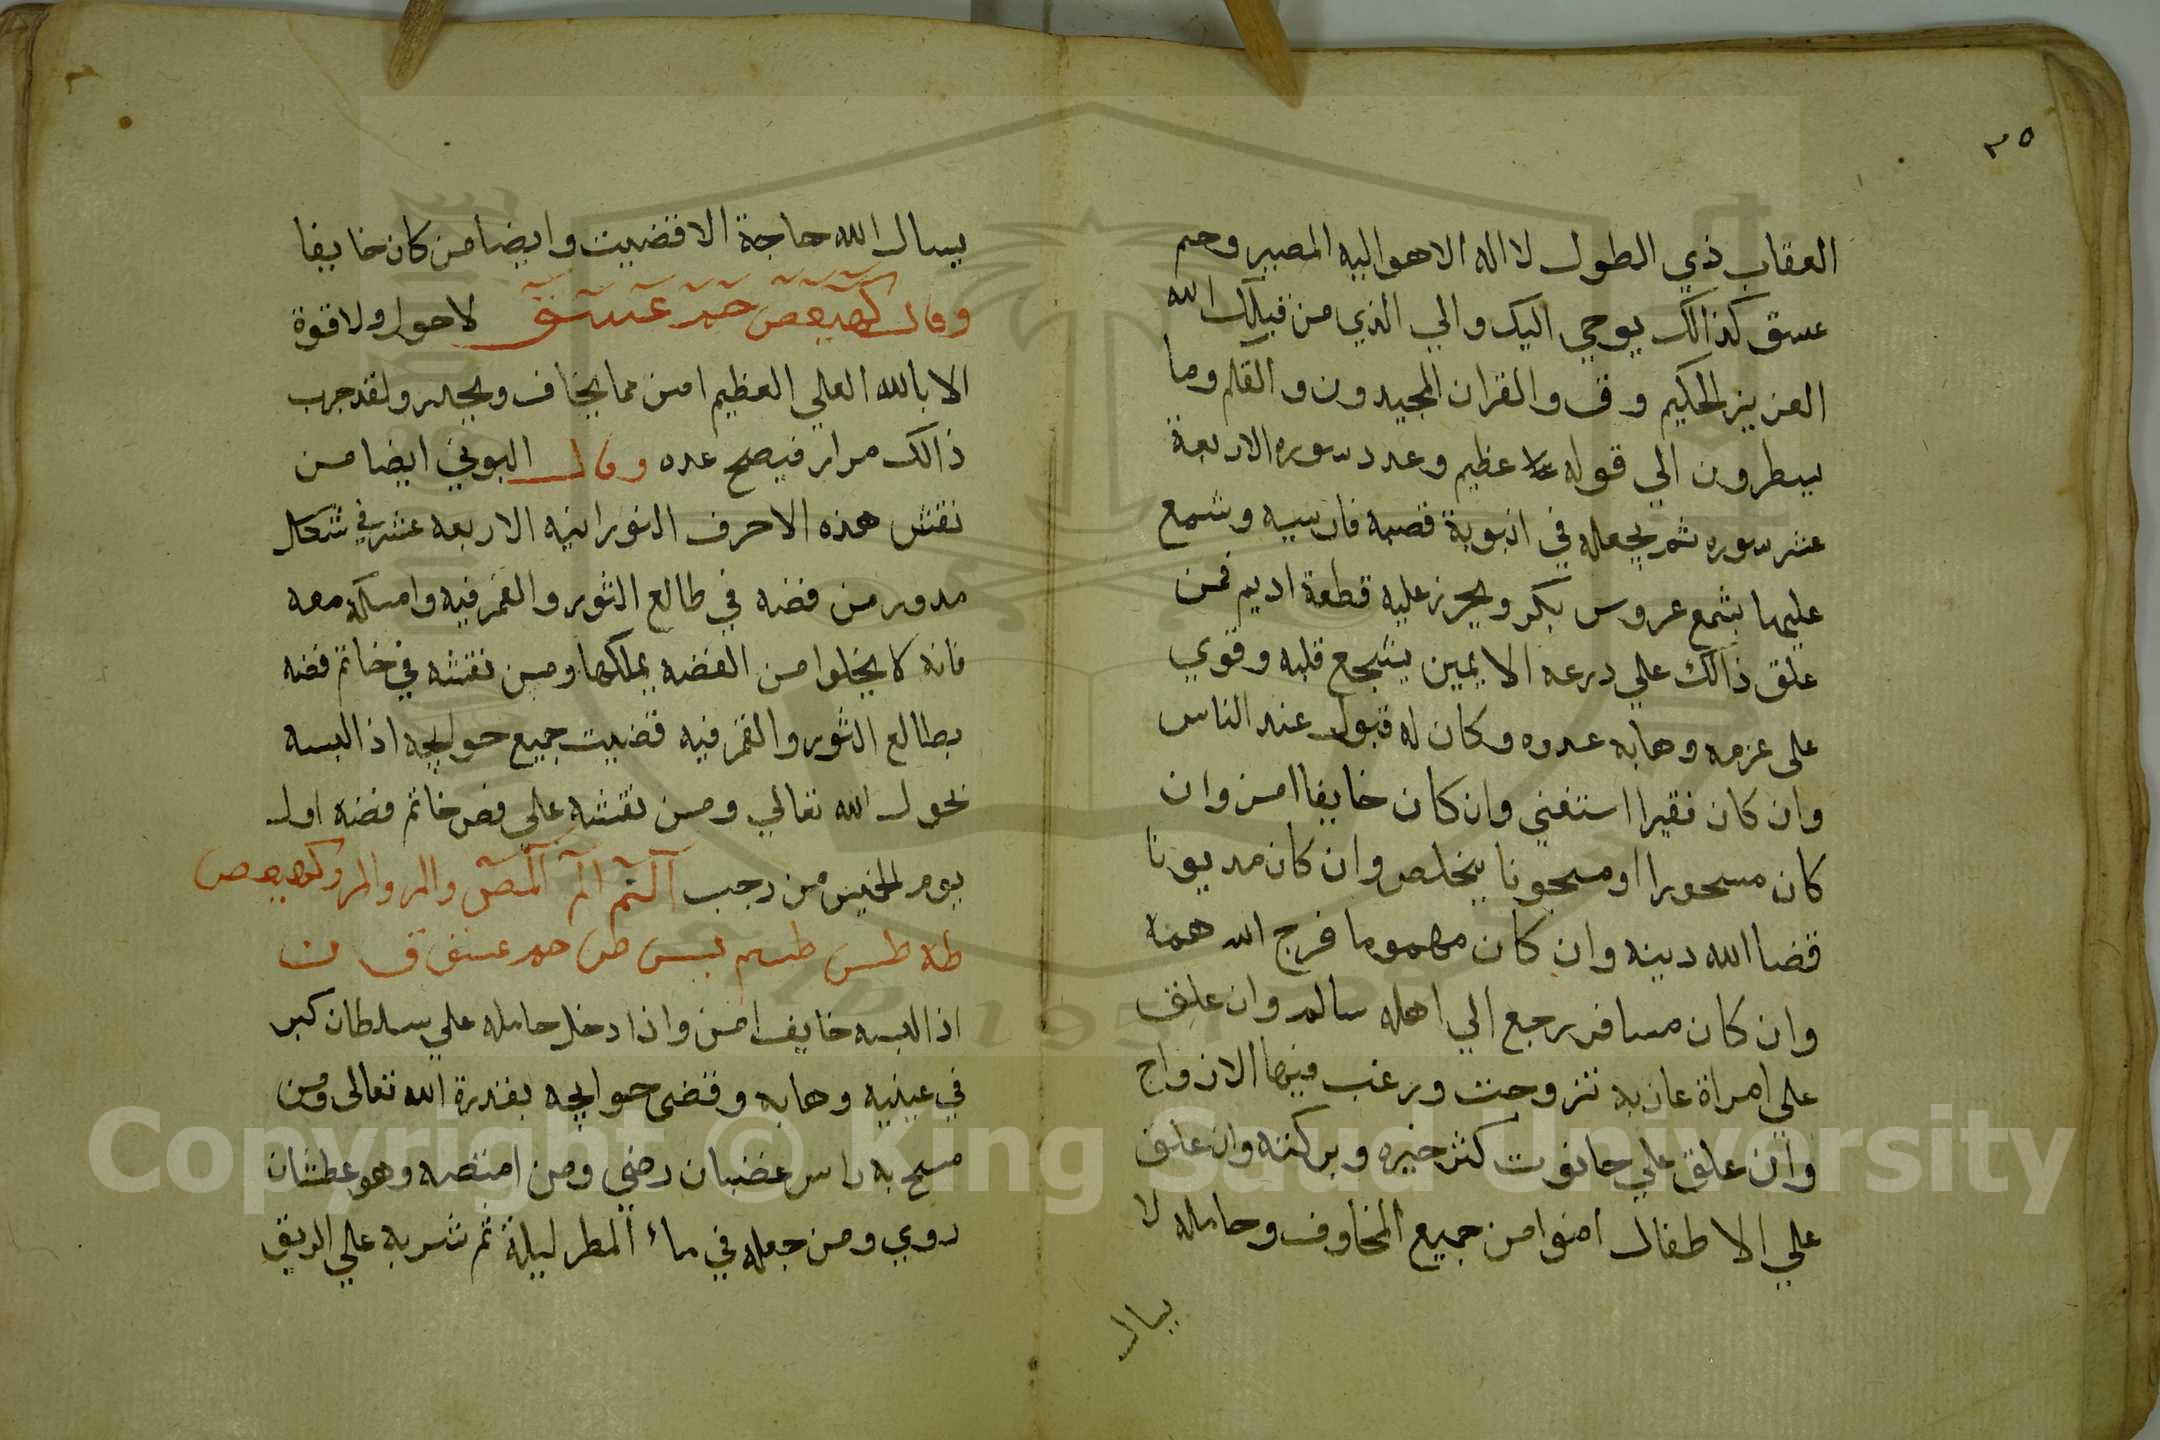 ٣٥
العقاب ذي الطول لا اله الا هو اليه المصير وحم
عسق كذالك يوحي اليك والي الذي من قبلك الله
العزيز الحكيم وق والقران المجيد ون والقلم وما
يسطرون الي قوله عظيم وعدد سوره الاربعة
عشر سوره ثم يجعله في انبوبة قصبه فارسيه وشمع
عليها بشمع عروس بكر ويحرز عليه قطعة اديم فمن
علق ذالك علي درعه الايمين يشجع قلبه وقوي
علي عزمه وهابه عدوه وكان له قبول عند الناس
وان كان فقيرا استغني وان كان خايفا امن وان
كان مسحورا او مسجونا يخلص وان كان مديونا
قضا الله دينه وان كان مهموما فرج الله همه
وان كان مسافر يرجع الي اهله سالم وان علق
علي امراة عازبه تزوجت ويرغب فيها الازواج
وان علق علي حانوت كثر خيره وبركته وان علق
علي الاطفال امنوا من جميع المخاوف وحامله لا
يسال
يسال الله حاجة الا قضيت وايضا من كان خايفا
وقال كهيعص حم عسق لا حول ولا قوة
الا بالله العلي العظيم امن مما يخاف ويحدر ولقد جرب
ذالك مرار فيصح عده وقال البوني ايضا من
نقش هذه الاحرف النورانيه الاربعه عشر في شكل
مدور من فضه في طالع الثور والقمر فيه وامسكه معه
فانه لا يخلوا من الفضه يملكها ومن نقشه في خاتم فضه
بطالع الثور والقمر فيه قضيت جميع حوايجه اذا لبسه
بحول الله تعالي ومن نقشه علي فص خاتم فضه اول
يوم الخميس من رجب الم الم المص والر والمر وكهيعص
طه طس طسم يس ص حم عسق ق ن
اذا لبسه خايف امن واذا دخل حامله علي سلطان كبر
في عينيه وهابه وقضي حوايجه بقدرة الله تعالى ومن
مسح به راس غضبان رضي ومن امتصه وهو عطشان
روي ومن جعله في ماء المطر ليلة ثم شربه علي الريق
Copyright © King Saud University